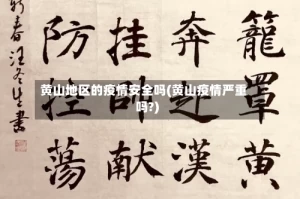 黄山地区的疫情安全吗(黄山疫情严重
吗?)
籠罩黄
奔赴漢
挂帥献
防控蕩
春汪冬生書